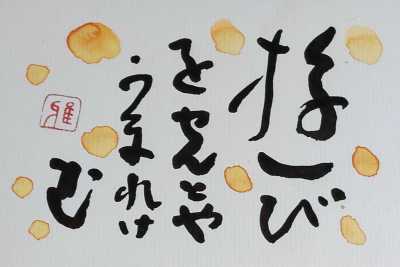 遊び
をせんとや
うまれけ
む